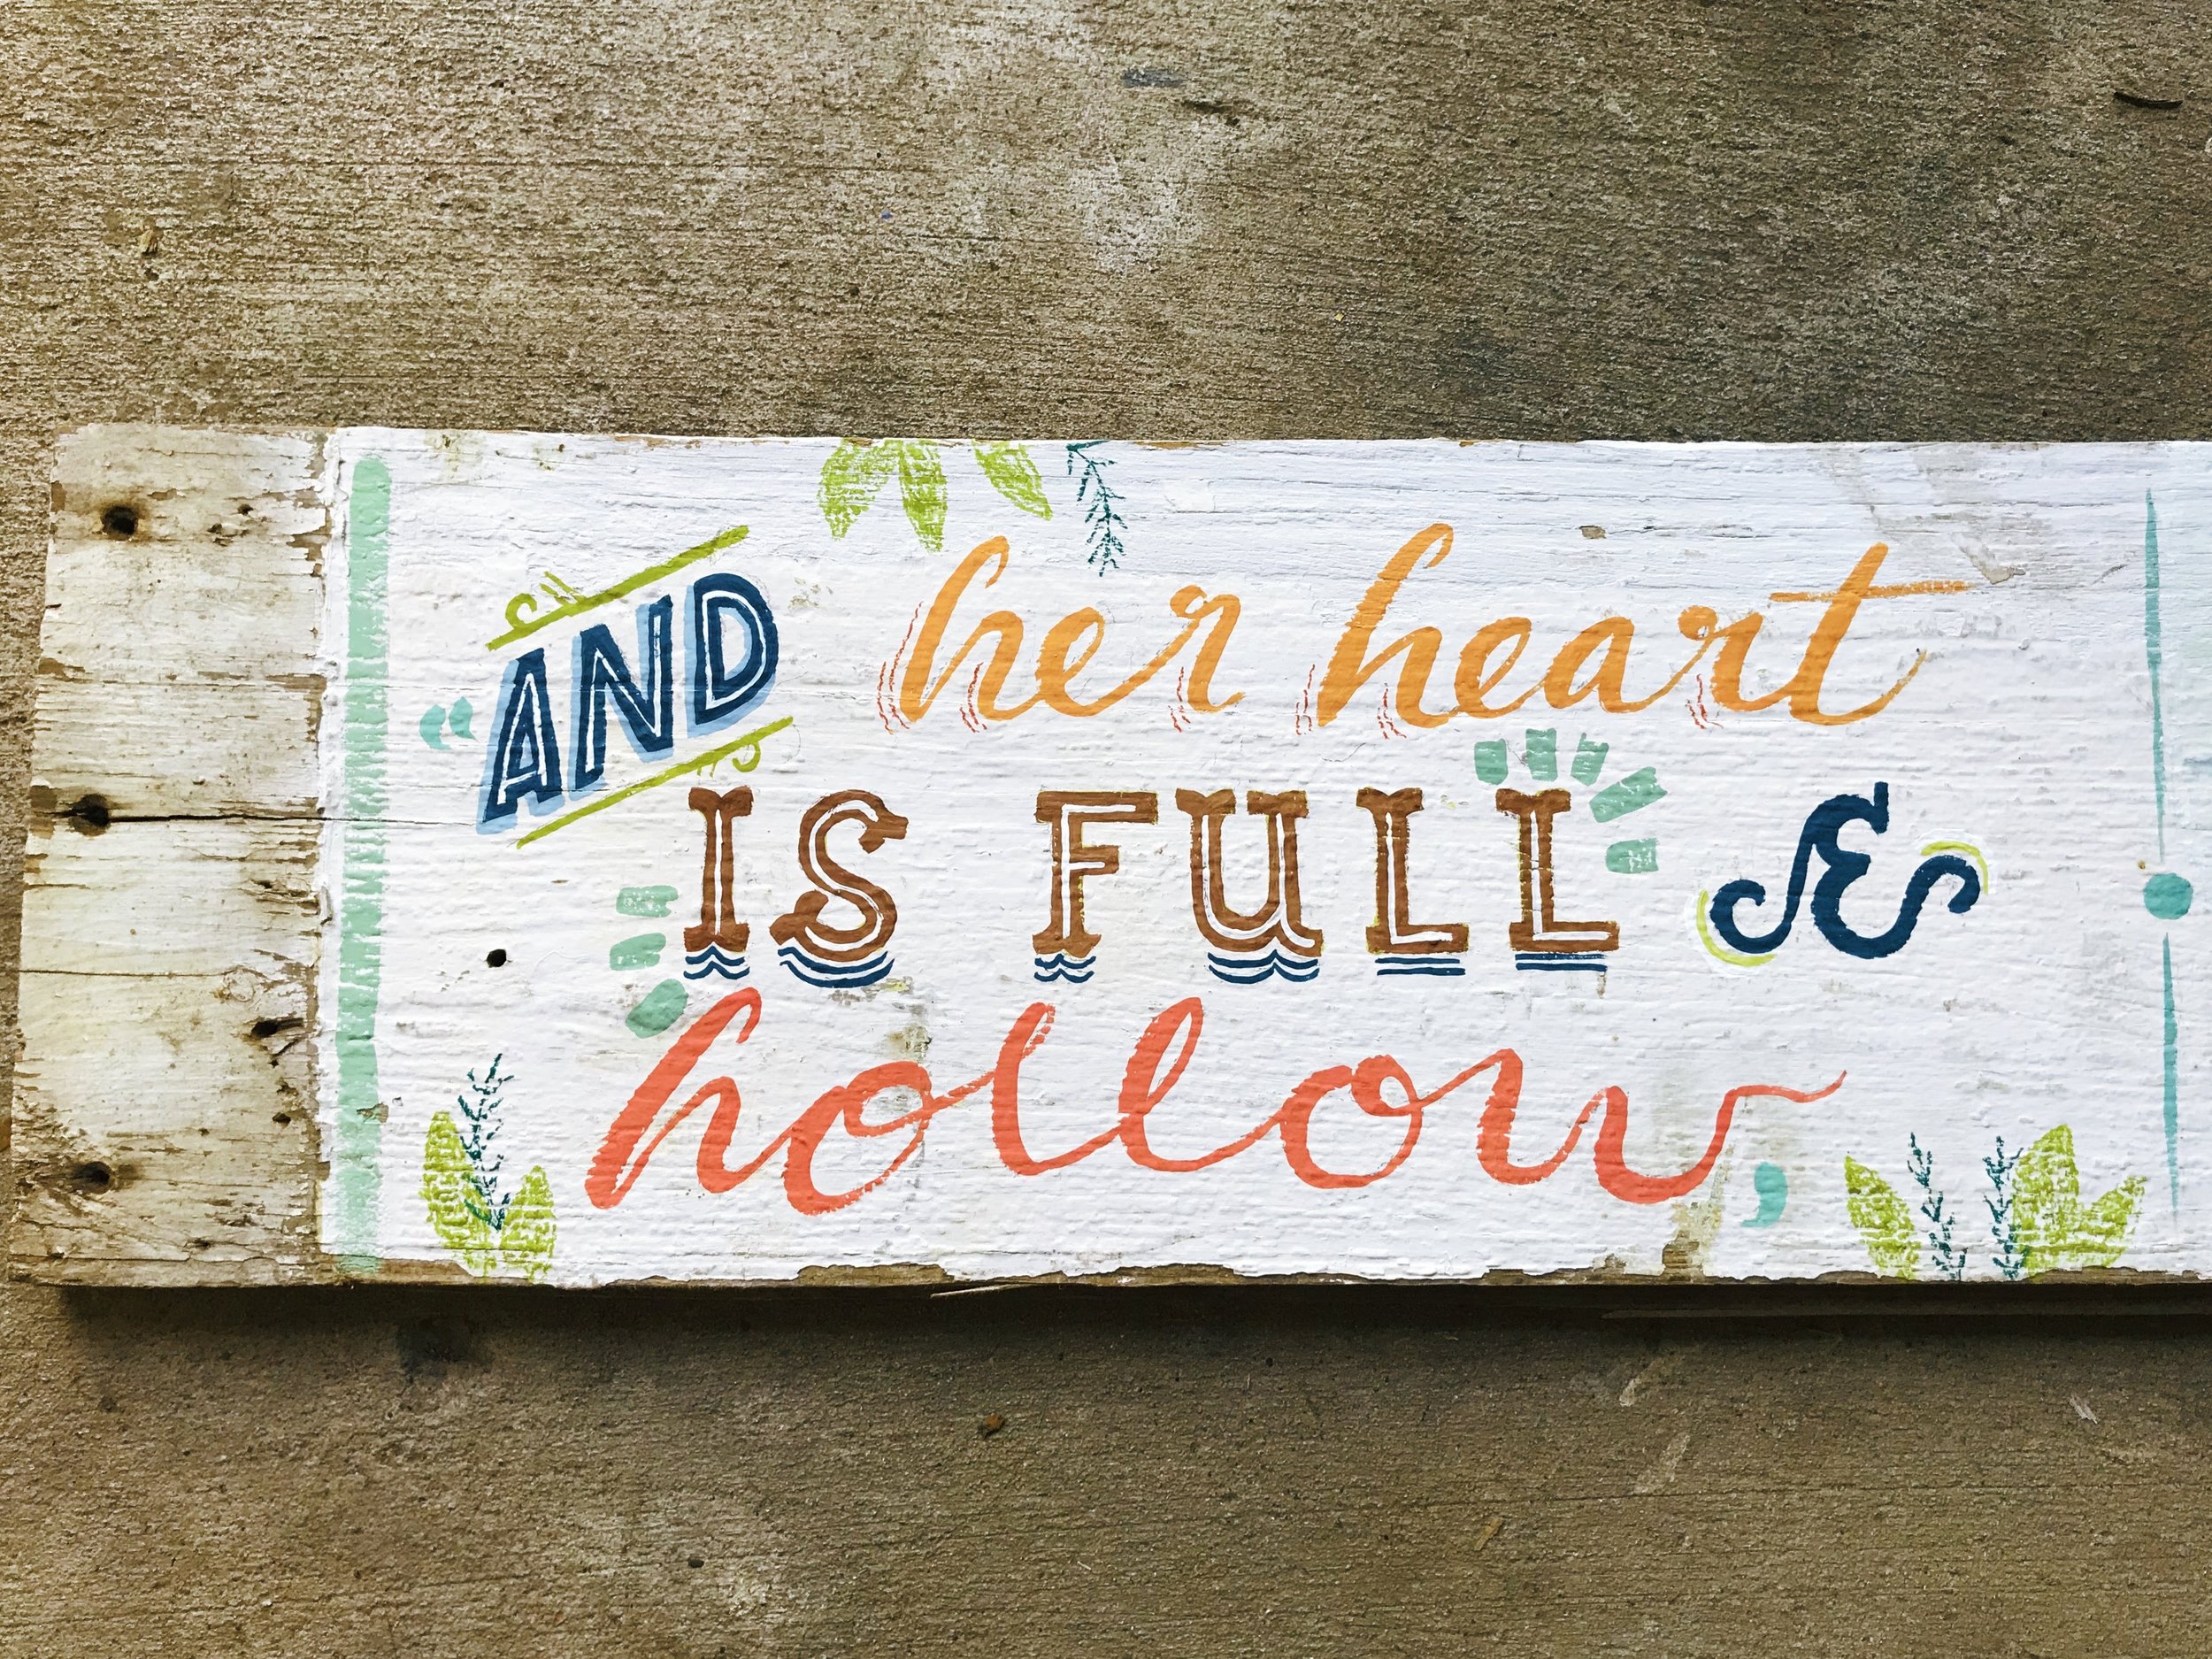 “AND her heart
IS FULL &
hollow,